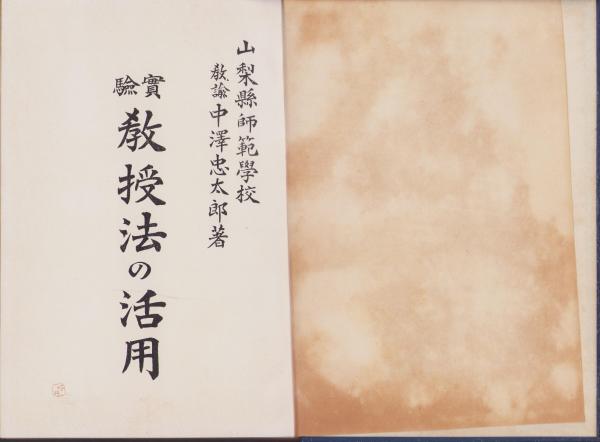 山梨縣師範學校
教諭中澤忠太郎著
實驗
教授法の活用